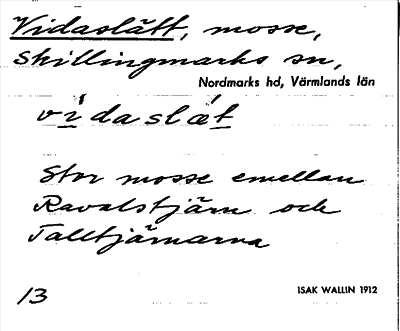 Vidaslätt, mosse,
Skillingmarks sn,
Nordmarks hd, Värmlands län
vìdaslǽt
Stor mosse emellan
Ravalstjärn och
Talltjärnarna
13
ISAK WALLIN 1912